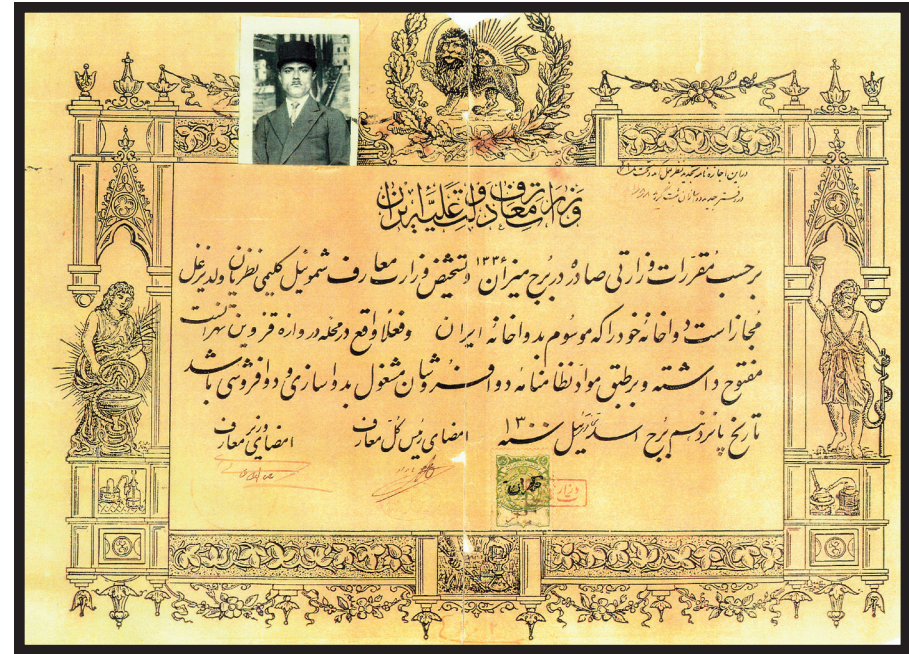 وزارت معارف دولت علیّه ایران
بر حسب مقررات وزارتی صادره در برج میزان ۱۳۳۶ و تشخیص وزارت معارف شموئیل کلیمی نظریان ولد یزغل
مجاز است دواخانه خود را که موسوم بدواخانه ایران و فعلا واقع در محله دروازه قزوین تهران است
مفتوح داشته و بر طبق مواد نظامنامه دوافروشان مشغول بدواسازی و دوافروشی باشد
تاریخ پانزدهم برج اسد سنه ۱۳۰
امضای رئیس کل معارف
امضای وزیر معارف